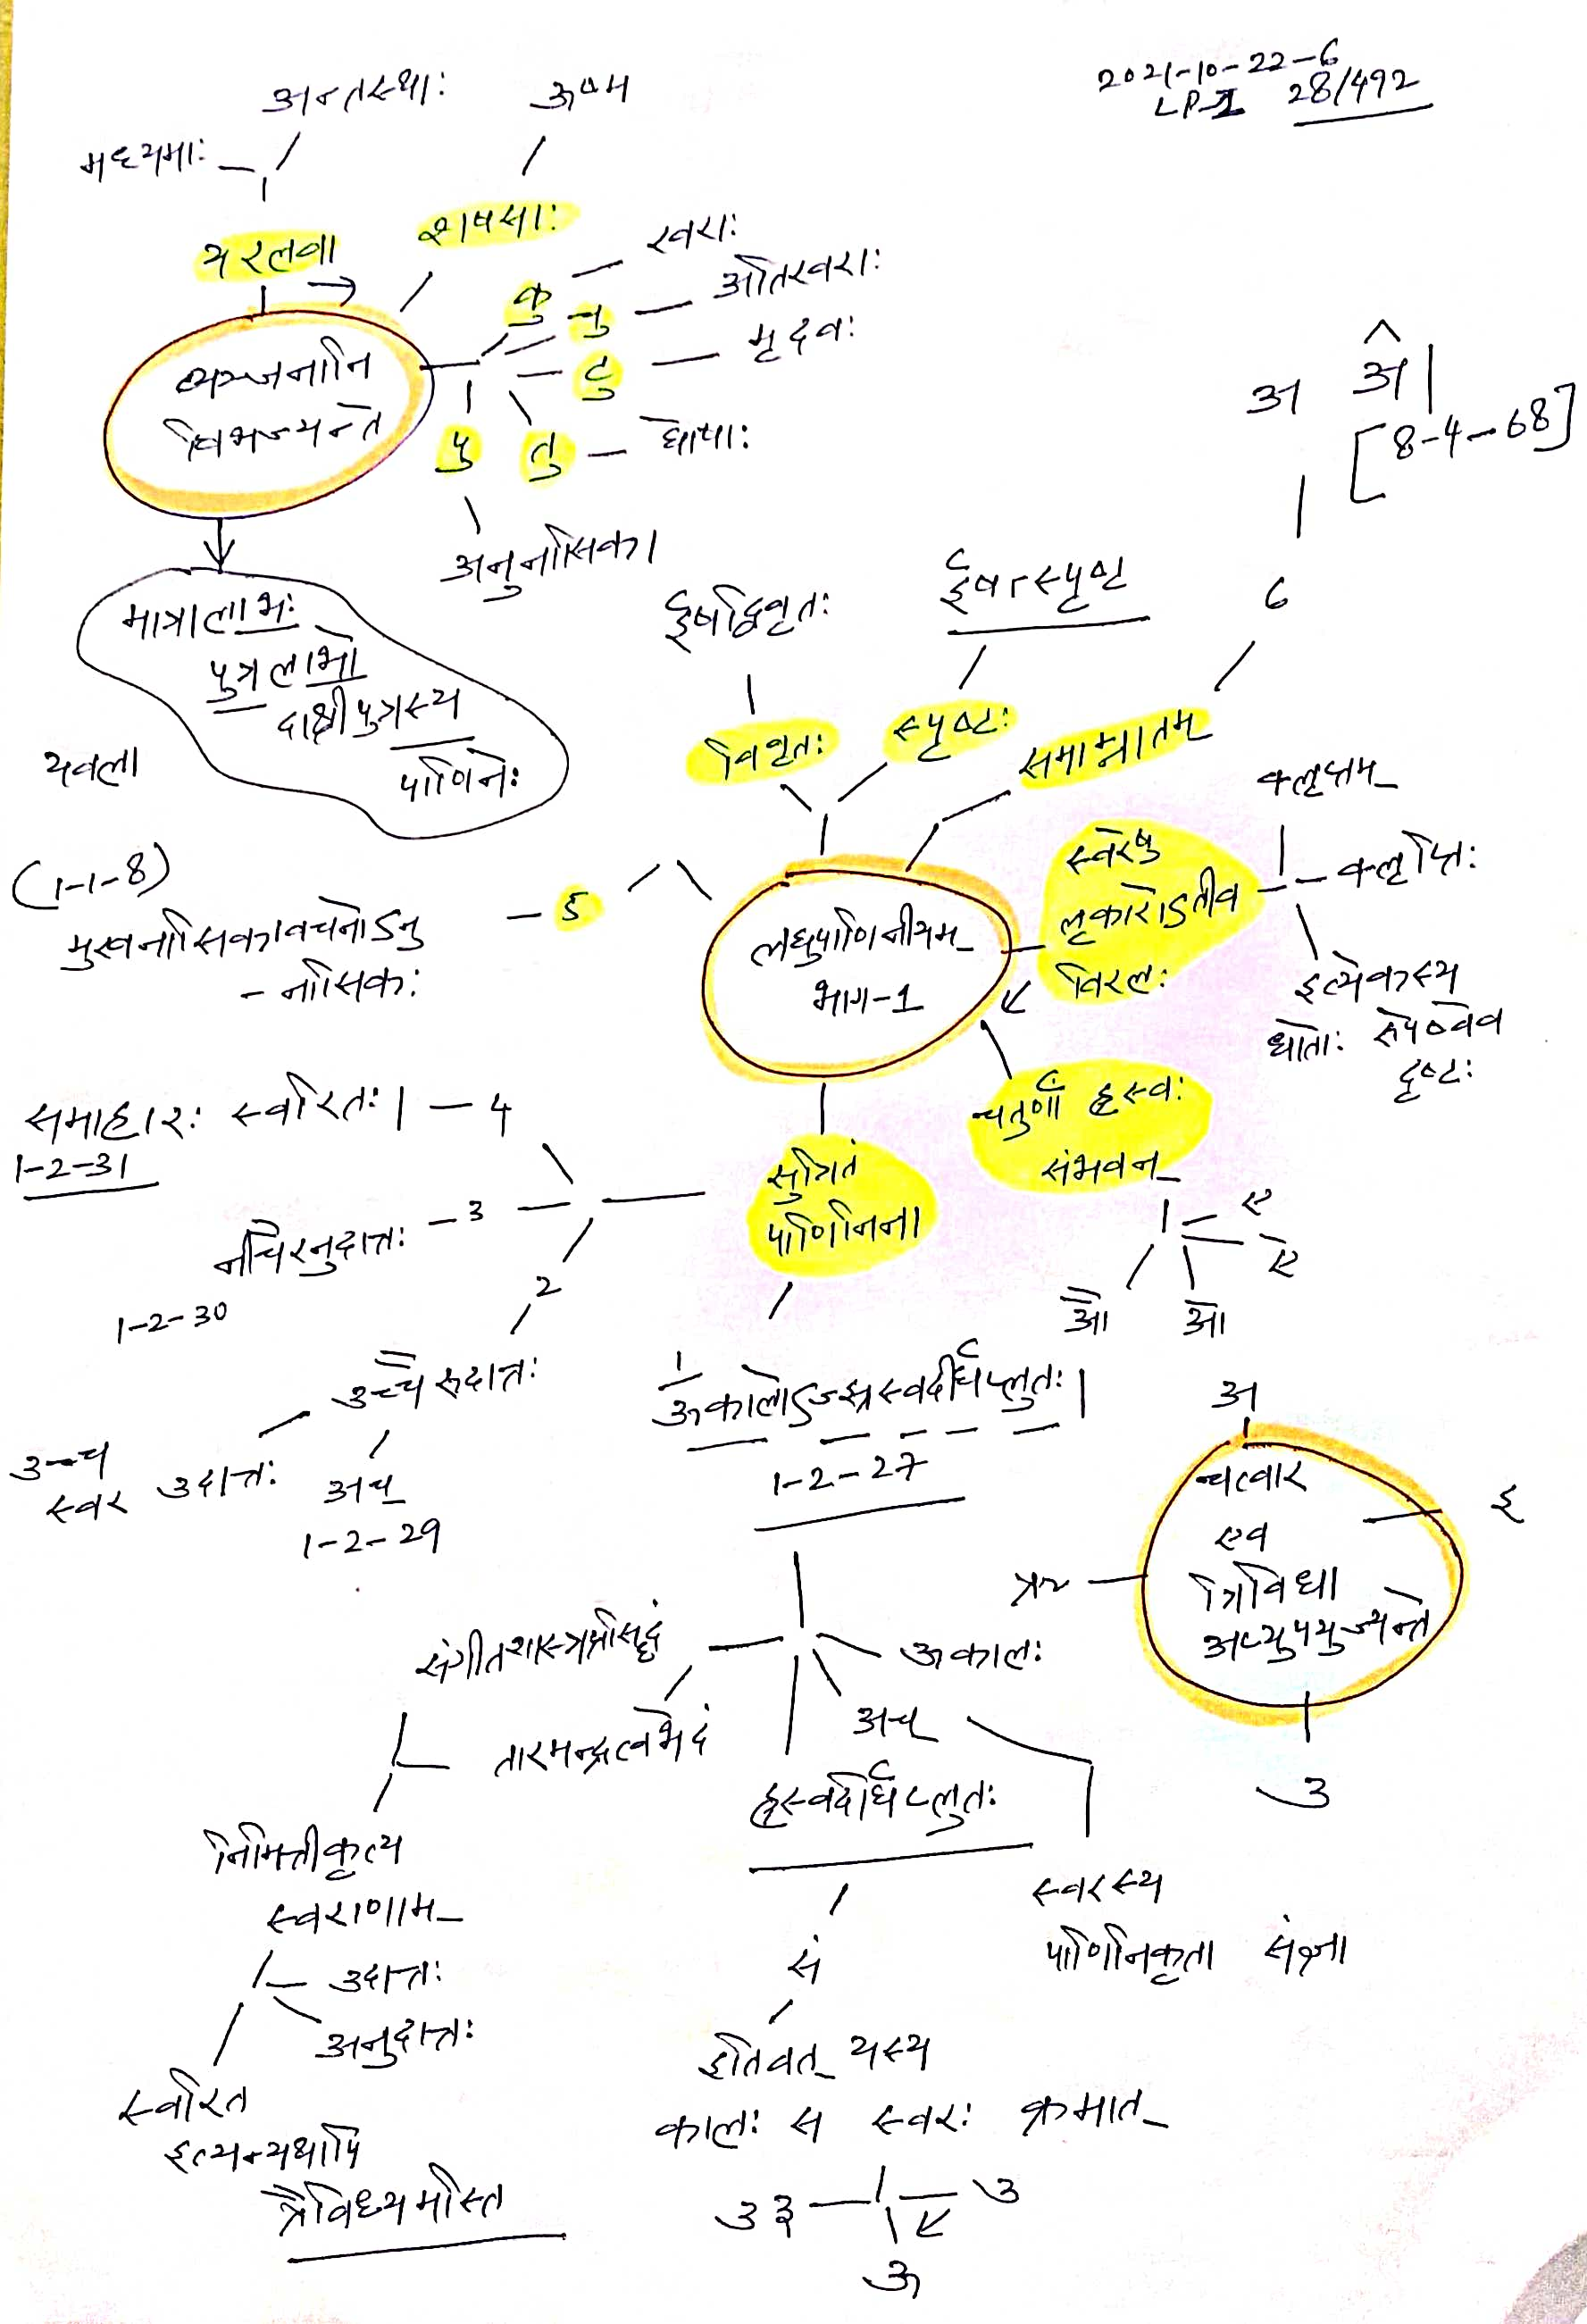 2021-10-22-6
LP-1 28/492
अन्तस्थाः
ऊष्म
मध्यमाः
यरलवा
शषसाः
खराः
कु
चु
अतिखराः
टु
मृदवः
पु
तु
घोषाः
अनुनासिका
व्यञ्जनानि
विभज्यन्ते
मात्रालाभः
पुत्रलाभो
दाक्षीपुत्रस्य
पाणिनेः
यवला
अ अ।
[8-4-68]
6
ईषद्विवृतः
ईषत्स्पृष्ट
विवृतः
स्पृष्टः
समाम्नातम्
लघुपाणिनीयम्
भाग-1
स्वरेषु
लृकारोऽतीव
विरलः
क्लृप्तम्
क्लृप्तिः
इत्येकस्य
धातोः रूपेष्वेव
दृष्टः
(1-1-8)
मुखनासिकावचनोऽनु
- नासिकः
5
समाहारः स्वरितः। - 4
1-2-31
नीचैरनुदात्तः - 3
1-2-30
2
उच्चैरुदात्तः
उच्च
स्वर
उदात्तः
अच्
1-2-29
सूत्रितं
पाणिनिना
चतुर्णां ह्रस्वः
संभवन्
ए
ऐ
औ
ओ
1
ऊकालोऽज्झ्रस्वदीर्घप्लुतः।
1-2-27
अ
चत्वार
एव
त्रिविधा
अप्युपयुज्यन्ते
इ
ऋ
उ
संगीतशास्त्रप्रसिद्धं
तारमन्द्रत्वभेदं
ऊकालः
अच्
ह्रस्वदीर्घप्लुतः
स्वरस्य
पाणिनिकृता संज्ञा
निमित्तीकृत्य
स्वराणाम्
उदात्तः
अनुदात्तः
स्वरित
इत्यन्यथापि
त्रैविध्यमस्ति
सं
इतिवत् यस्य
कालः स स्वरः क्रमात्
उ३
उ
ऊ